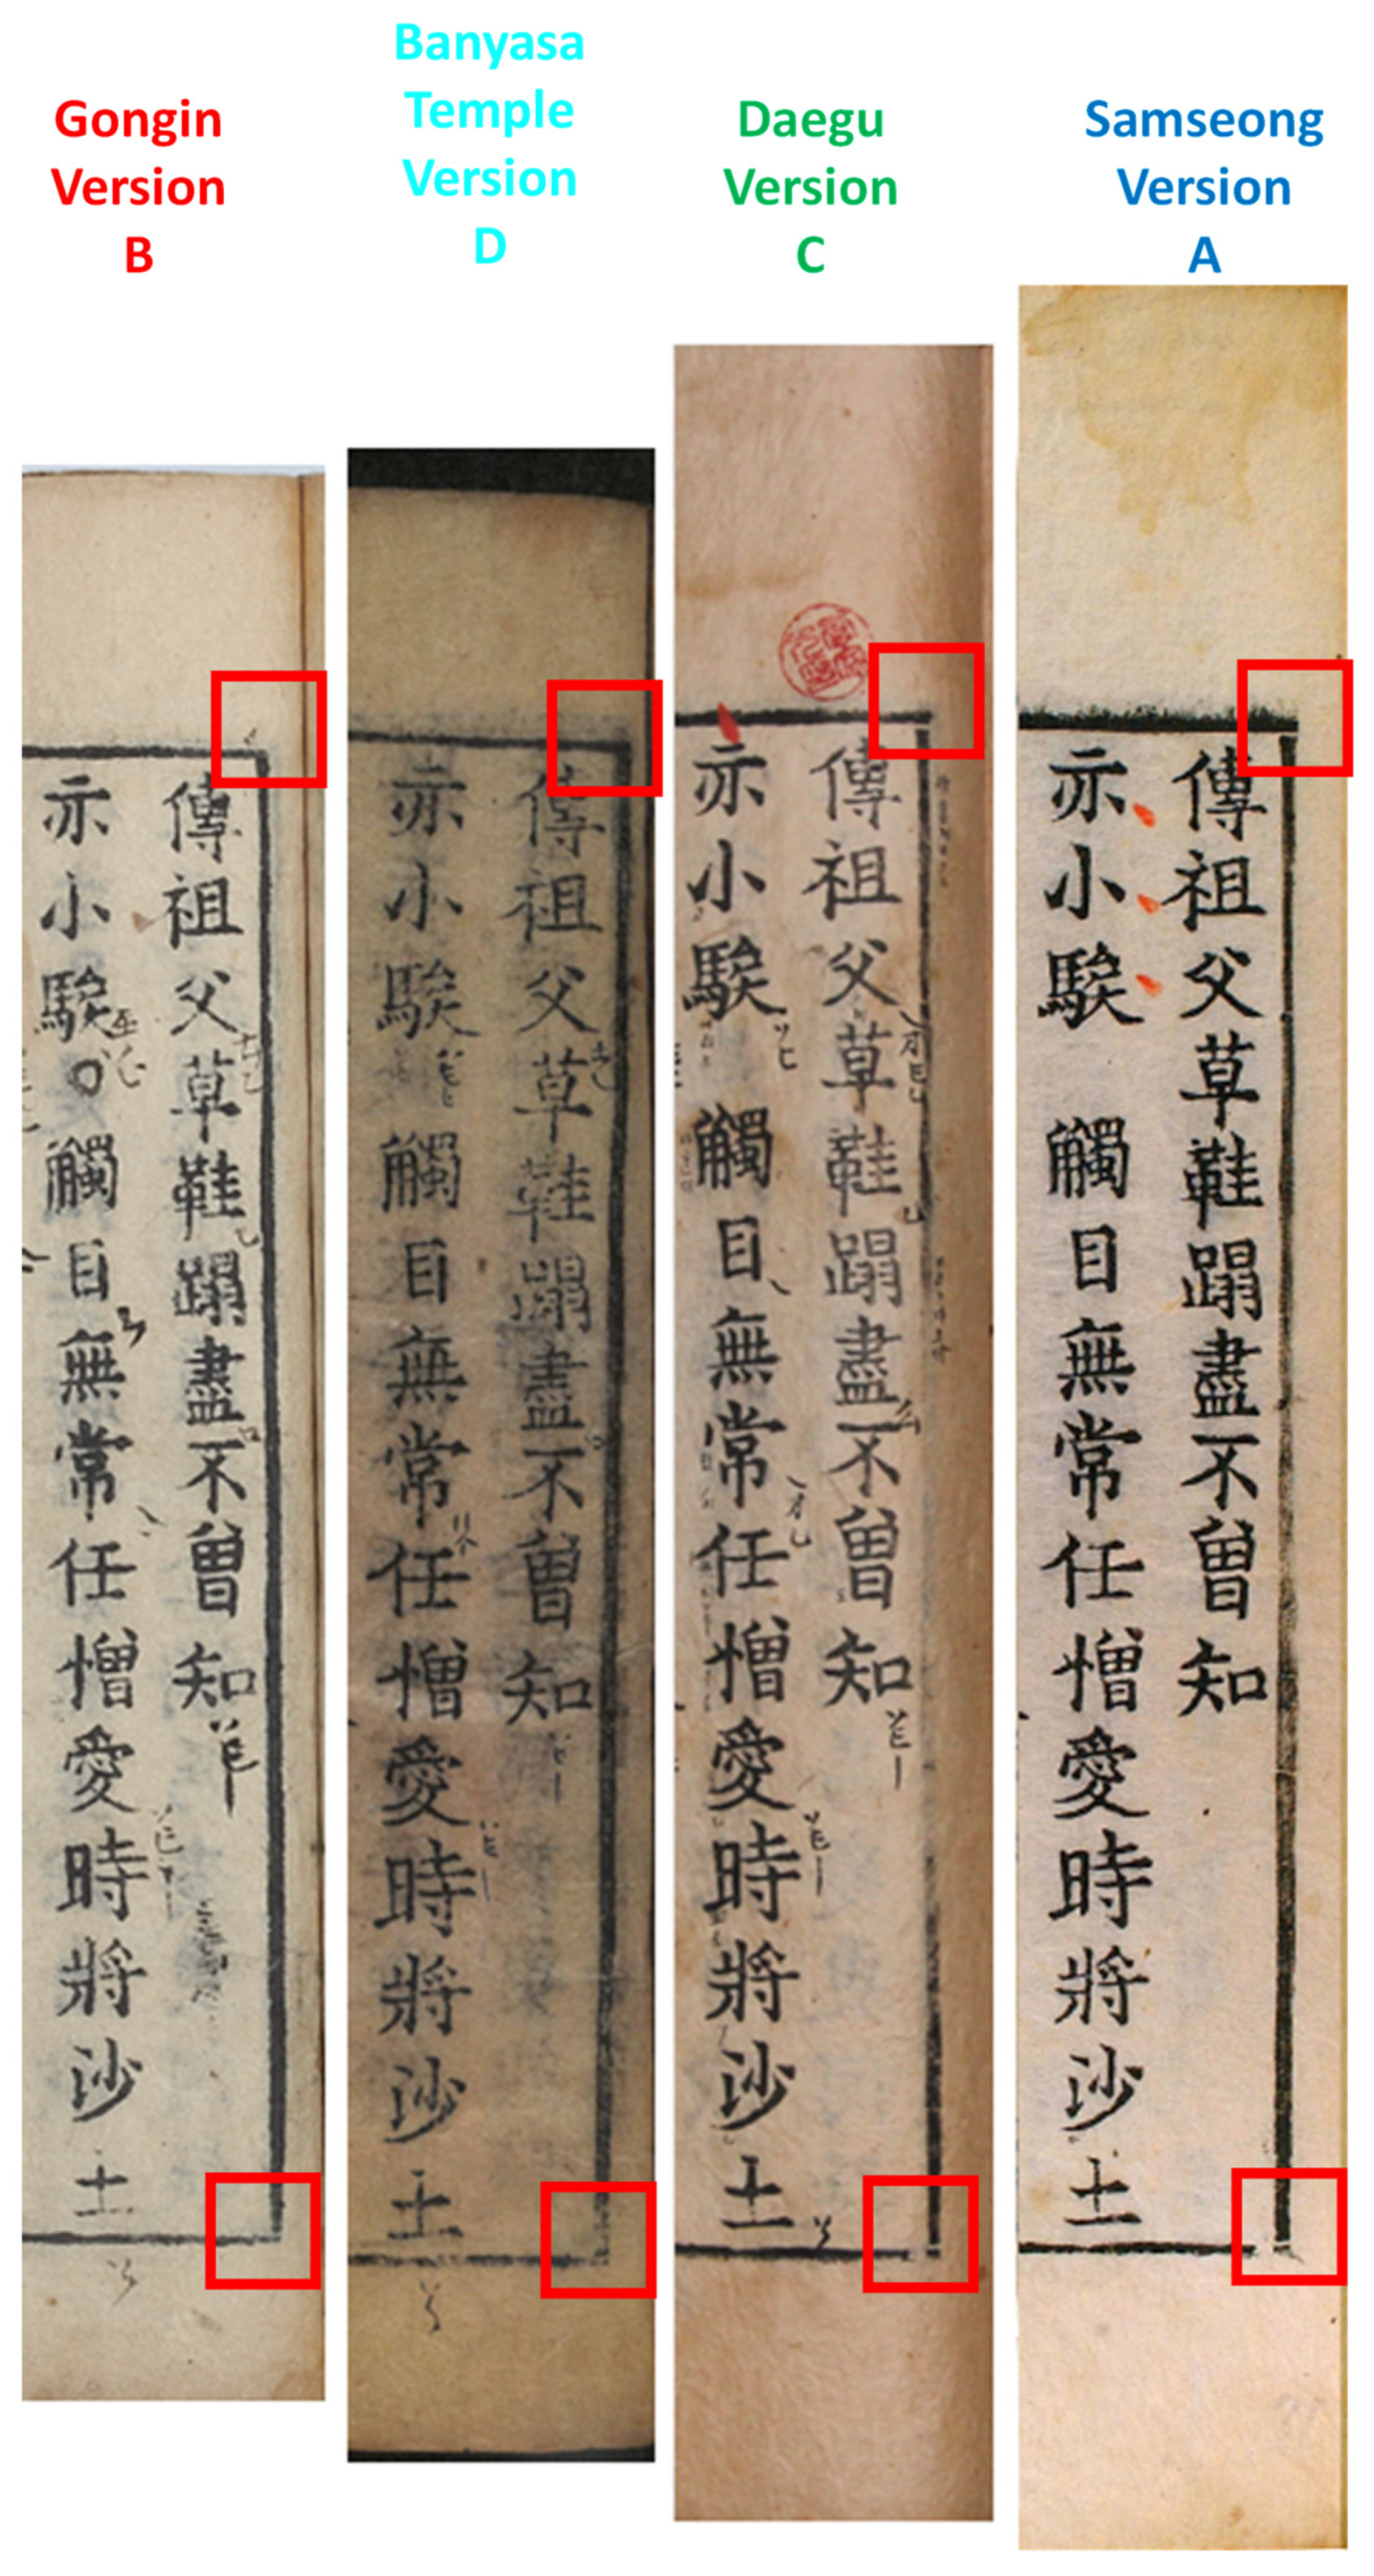 Gongin
Version
B
Banyasa
Temple
Version
D
Daegu
Version
C
Samseong
Version
A
傳祖父草鞋蹋盡不曾知
亦小騃○觸目無常任憎愛時將沙土
傳祖父草鞋蹋盡不曾知
亦小騃 觸目無常任憎愛時將沙土
傳祖父草鞋蹋盡不曾知
亦小騃 觸目無常任憎愛時將沙土
傳祖父草鞋蹋盡不曾知
亦小騃 觸目無常任憎愛時將沙土